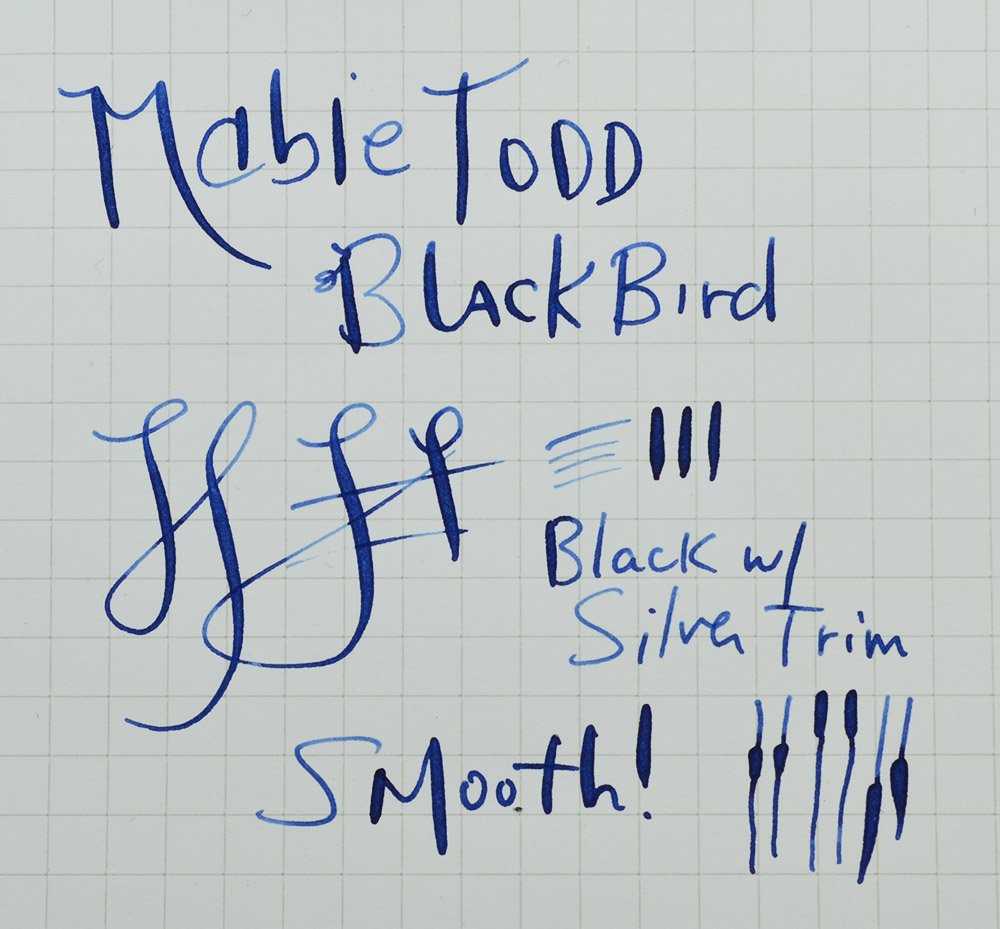 Mabie Todd
BlackBird
Black w/
Silver Trim
Smooth!